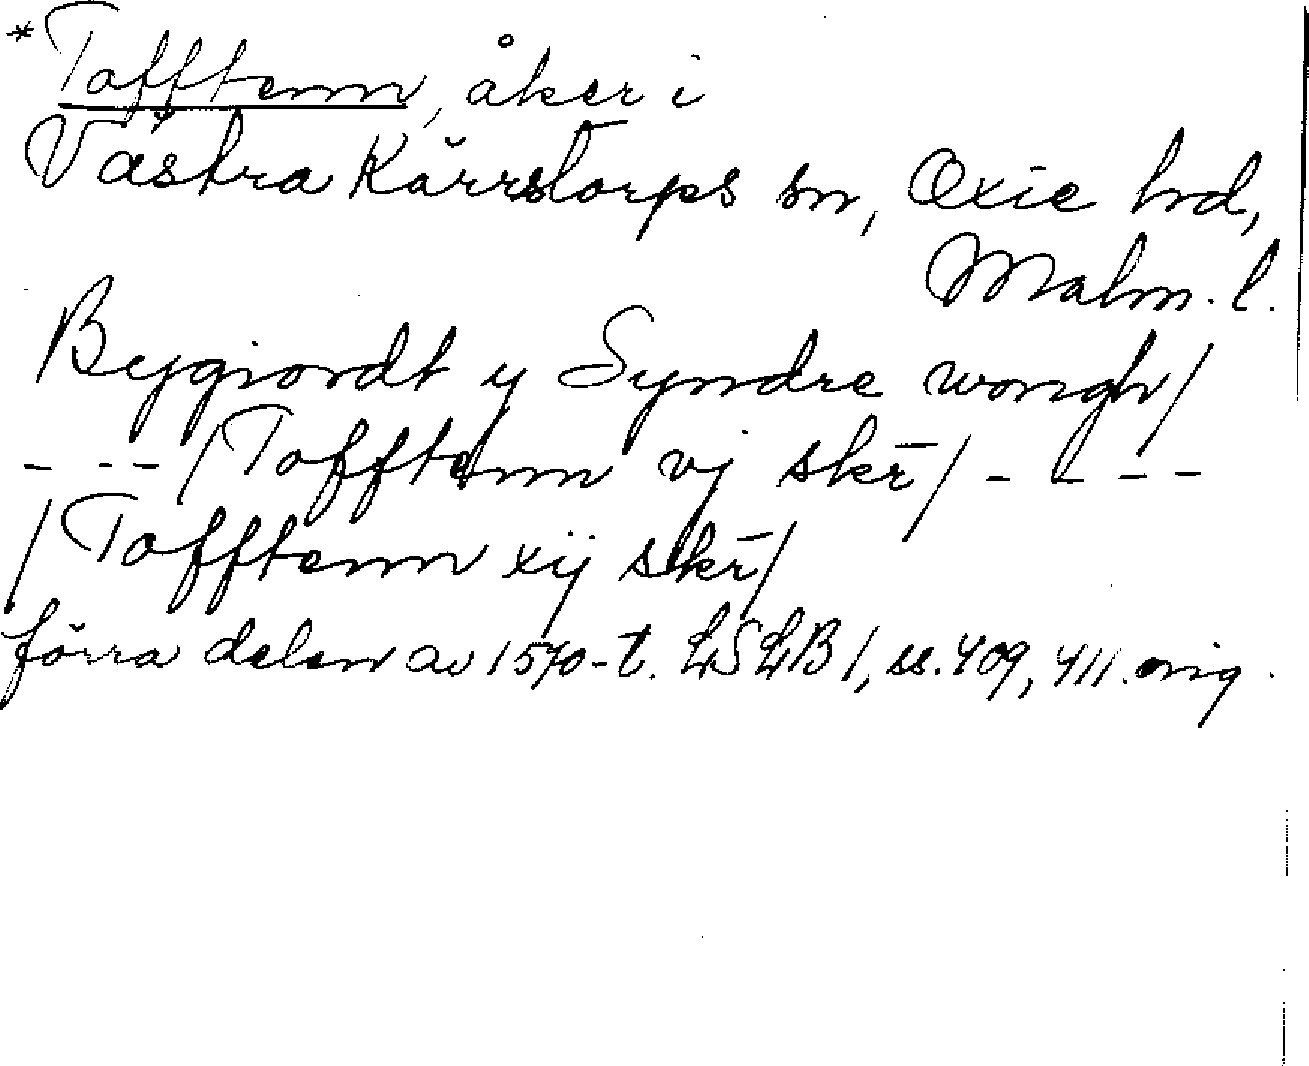 *Tofftenn, åker i
Västra Kärrstorps sn, Oxie hd,
Malm. l.
Bygiordt y Syndre wongh/
- - - /Tofftenn vj skr̄/ - - - -
/Tofftenn xij skr̄/
förra delen av 1570-t. LSLB 1, ss. 409, 411. orig.